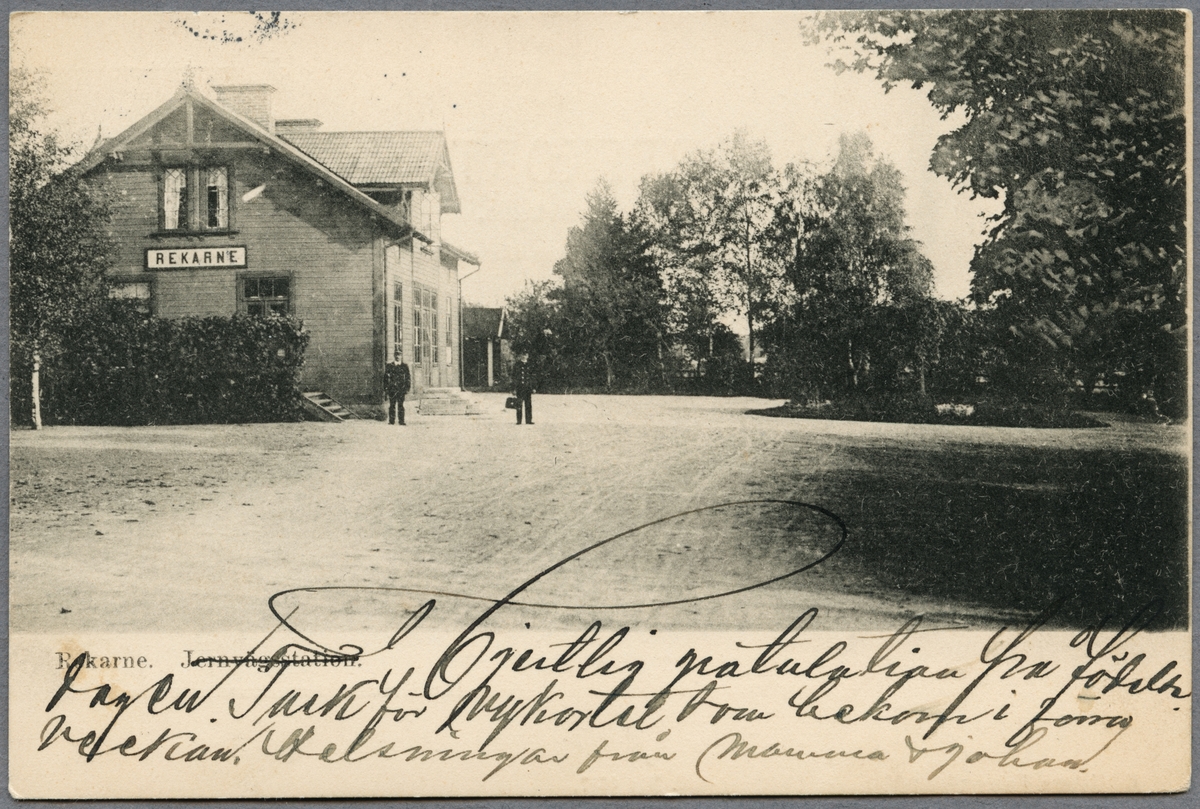 REKARNE
Rekarne. Jernvägsstation.
Hjertlig gratulation på födelse
dagen. Tack för vykortet som bekom i förra
veckan. Helsningar från Mamma & Johan.